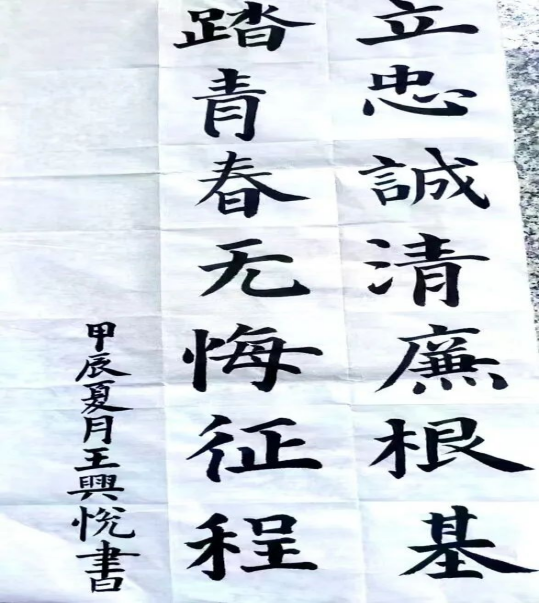 立忠誠清廉根基
踏青春无悔征程
甲辰夏月王興悅書